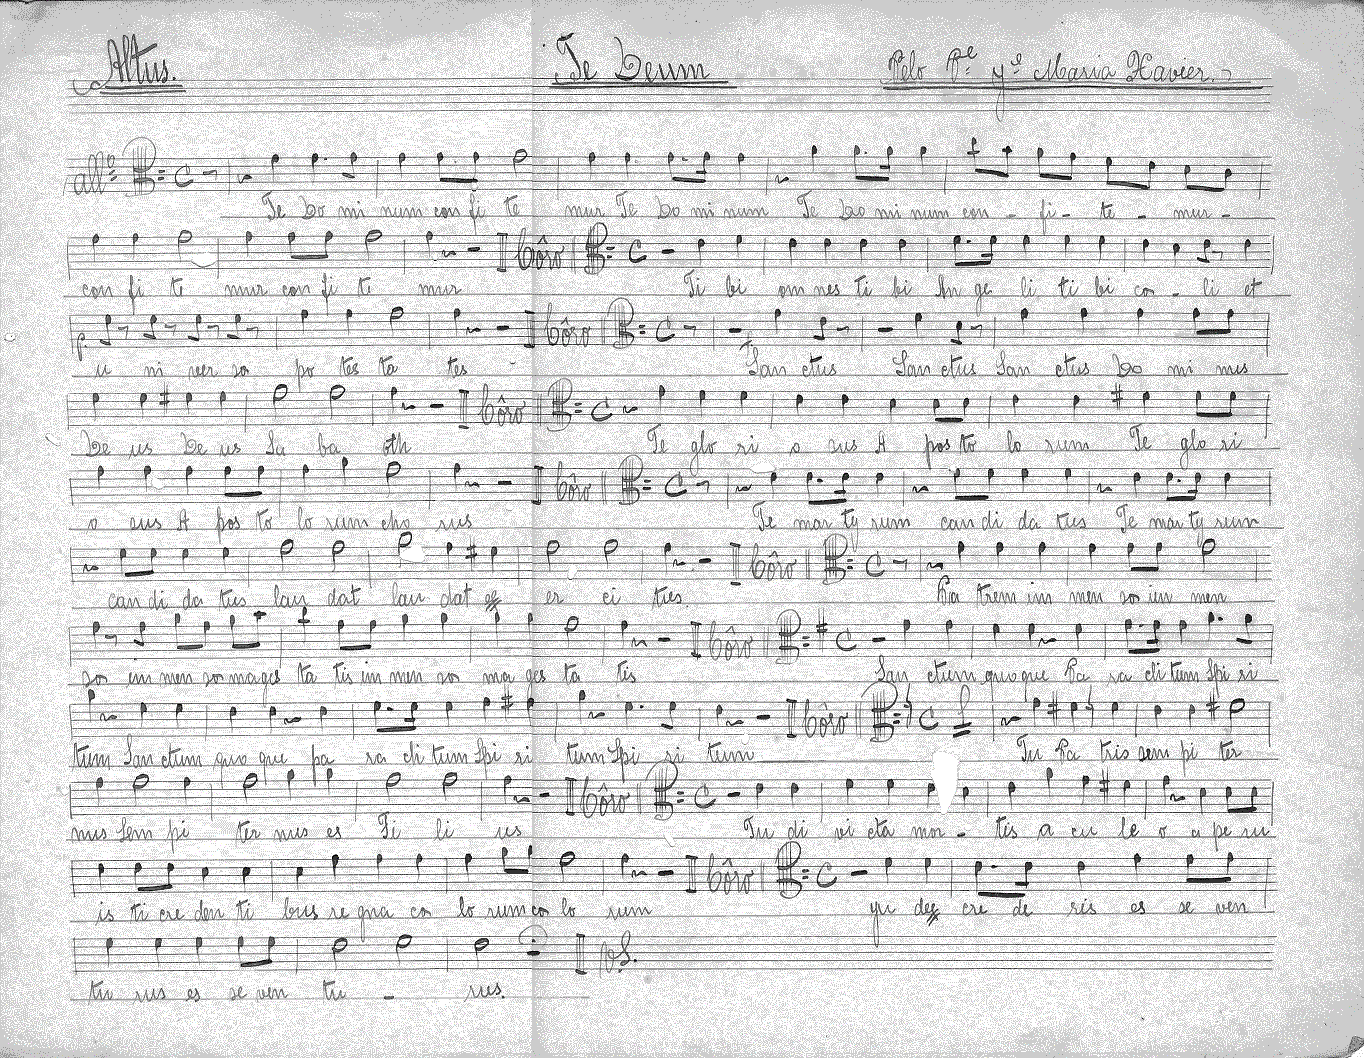 Altus. Te Deum Pelo Pe. Je. Maria Xavier.
allo
Te Do mi num con fi te mur Te Do mi num Te Do mi num con - fi - te - mur -
Côro
con fi te mur con fi te mur Ti bi om nes ti bi An ge li ti bi co - li et
p. Côro
u ni ver sa po tes ta tes - San ctus San ctus San ctus Do mi nus
Côro
De us De us Sa ba oth Te glo ri o sus A pos to lo rum Te glo ri
Côro
o sus A pos to lo rum cho rus Te mar ty rum can di da tus Te mar ty rum
Côro
can di da tus lau dat lau dat ex er ci tus Pa trem im men so im men
Côro
so im men so ma ges ta tis im men so ma ges ta tis San ctum quo que Pa ra cli tum Spi ri
Côro
tum San ctum quo que pa ra cli tum Spi ri tum Spi ri tum Tu Pa tris sem pi ter
Côro
nus Sem pi ter nus es Fi li us Tu di vi cta mor - tis a cu le o a pe ru
Côro
is ti cre den ti bus re gna cœ lo rum cœ lo rum yu dex cre de ris es se ven
D.S.
tu rus es se ven tu - rus.